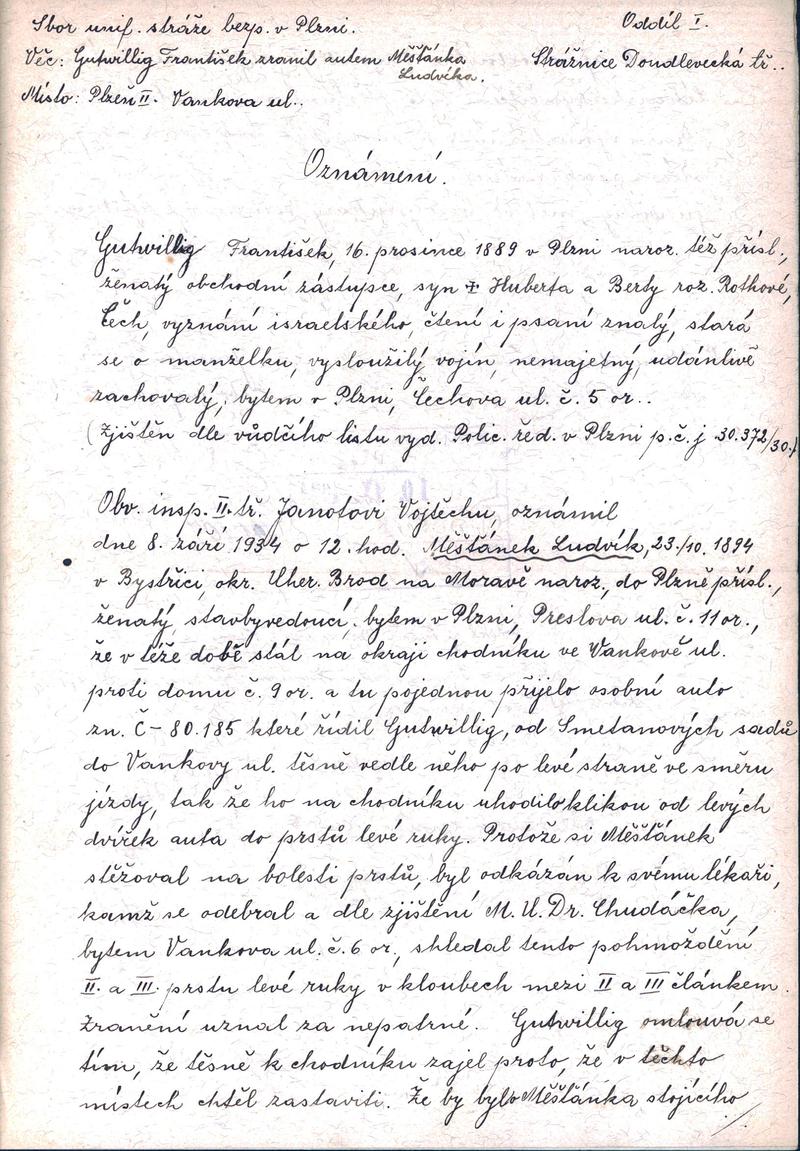 Sbor unif. stráže bezp. v Plzni.
Oddíl I.
Věc: Gutwillig František zranil autem Měšťánka
Ludvíka.
Strážnice Doudlevecká tř..
Místo: Plzeň II. Vankova ul..
Oznámení.
Gutwillig František, 16. prosince 1889 v Plzni naroz. též přísl.,
ženatý obchodní zástupce, syn ‡ Huberta a Berty roz. Rothové,
Čech, vyznání israelského, čtení i psaní znalý, stará
se o manželku, vysloužilý vojín, nemajetný, udánlivě
zachovalý, bytem v Plzni, Čechova ul. č. 5 or..
(Zjištěn dle vůdčího listu vyd. Polic. řed. v Plzni p.č. j 30.372/30.)
Obv. insp. II. tř. Janotovi Vojtěchu, oznámil
dne 8. září 1934 o 12. hod. Měšťánek Ludvík, 23./10. 1894
v Bystřici, okr. Uher. Brod na Moravě naroz., do Plzně přísl.,
ženatý, stavbyvedoucí, bytem v Plzni, Preslova ul. č. 11 or.,
že v téže době stál na okraji chodníku ve Vankově ul.
proti domu č. 9 or. a tu pojednou přijelo osobní auto
zn. Č - 80.185 které řídil Gutwillig, od Smetanových sadů
do Vankovy ul. těsně vedle něho po levé straně ve směru
jízdy, tak že ho na chodníku uhodilo klikou od levých
dvířek auta do prstů levé ruky. Protože si Měšťánek
stěžoval na bolesti prstů, byl odkázán k svému lékaři,
kamž se odebral a dle zjištění M. U. Dr. Chudáčka,
bytem Vankova ul. č. 6 or., shledal tento pohmoždění
II. a III. prstu levé ruky v kloubech mezi II a III článkem.
Zranění uznal za nepatrné. Gutwillig omlouvá se
tím, že těsně k chodníku zajel proto, že v těchto
místech chtěl zastaviti. Že by bylo Měšťánka stojícího